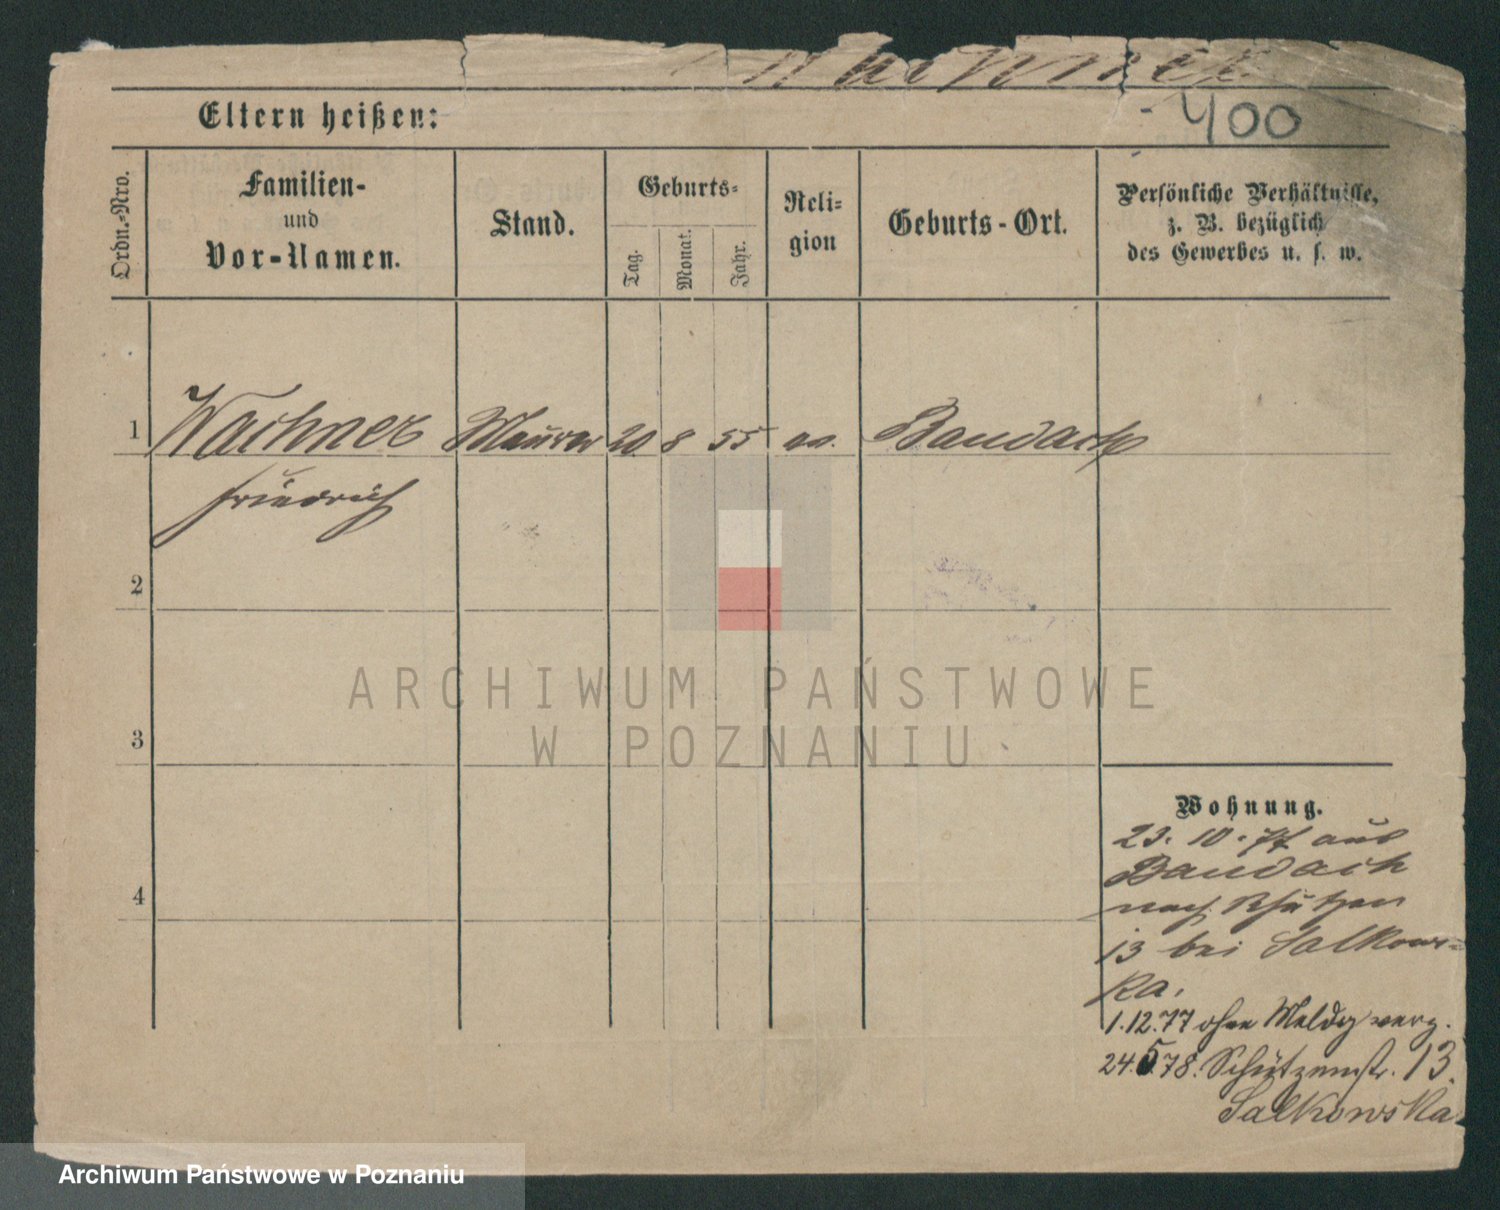 400
Eltern heißen:
Ordn.-Nro.
Familien-
und
Vor-Namen.
Stand.
Geburts-
Tag.
Monat.
Jahr.
Reli-
gion
Geburts-Ort.
Persönliche Verhältnisse,
z. B. bezüglich
des Gewerbes u. s. w.
1 Wachner Maurer 20 8 55 ev. Baudach
Friedrich
2
3
4
ARCHIWUM PAŃSTWOWE
W POZNANIU
Wohnung.
23. 10. 77 aus
Baudach
nach Schützen
13 bei Salkows-
ka.
1.12.77 ohne Meldg verz.
24.5.78. Schützenstr. 13.
Salkowska
Archiwum Państwowe w Poznaniu